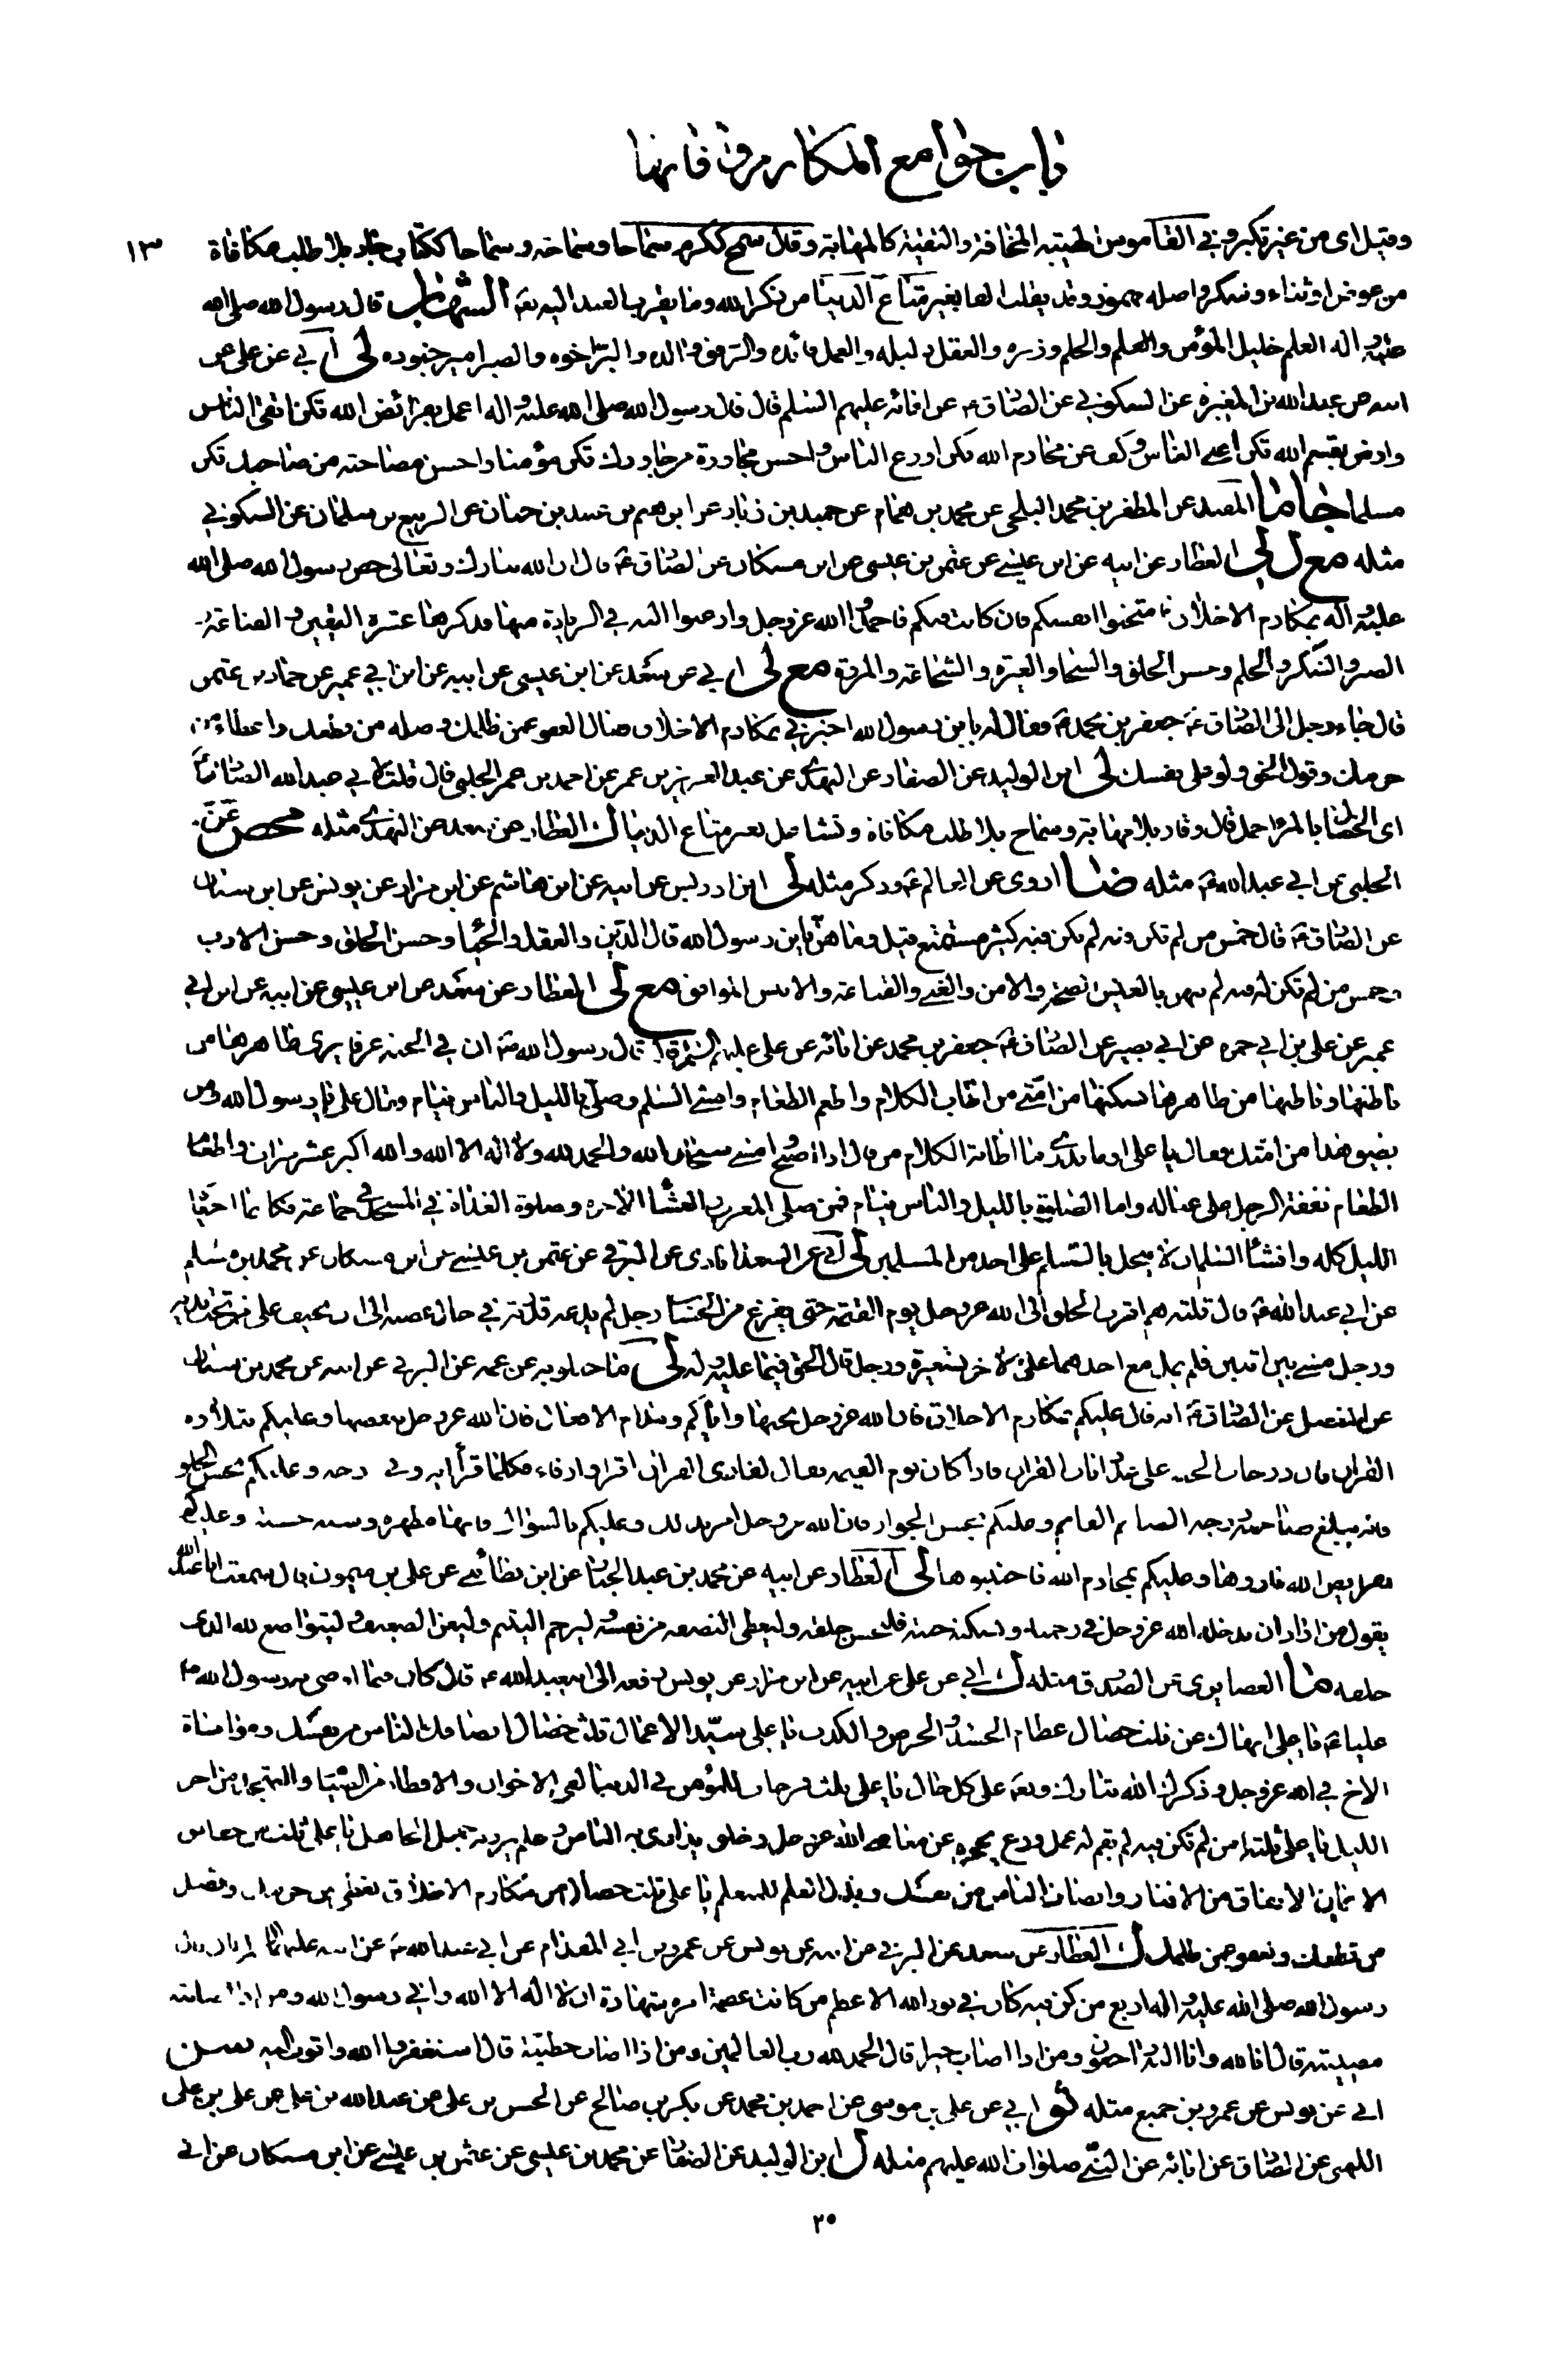 باب جوامع المكارم وآفاتها
١٣
وقيل اى من غير تكبر وفي القاموس الهيبة المخافة والتقية كالمهابة وقال سمح ككرم سماحا وسماحة وسماحا ككتاب جاد بلا طلب مكافاة
من عوض او ثناء وشكر واصله مهموز وقد يقلب الفا بغير متاع الدنيا من ذكر الله وما يقرب العبد اليه تع الشهاب قال رسول الله صلى الله
عليه واله العلم خليل المؤمن والحلم وزيره والعقل دليله والعمل قائده والرفق والده والبر اخوه والصبر امير جنوده لى ابي عن على عن
ابيه عن عبد الله بن المغيرة عن السكوني عن الصادق ع عن ابائه عليهم السلم قال قال رسول الله صلى الله عليه واله اعمل بفرائض الله تكن اتقى الناس
وارض بقسم الله تكن اغنى الناس وكف عن محارم الله تكن اورع الناس واحسن مجاورة من جاورك تكن مؤمنا واحسن مصاحبة من صاحبك تكن
مسلما جا ما المفيد عن المظفر بن محمد البلخي عن محمد بن همام عن حميد بن زياد عن ابرهيم بن عبيد بن حنان عن الربيع بن سلمان عن السكوني
مثله مع ل لى العطار عن ابيه عن ابن عيسى عن عثمن بن عيسى عن ابن مسكان عن الصادق ع قال ان الله تبارك وتعالى خص رسول الله صلى الله
عليه واله بمكارم الاخلاق فامتحنوا انفسكم فان كانت فيكم فاحمدوا الله عز وجل وارغبوا اليه في الزيادة منها فذكرها عشرة اليقين والقناعة
الصبر والشكر والحلم وحسن الخلق والسخاء والغيرة والشجاعة والمروة مع لى ابي عن سعد عن ابن عيسى عن ابيه عن ابن ابي عمير عن حماد بن عثمن
قال جاء رجل الى الصادق ع جعفر بن محمد ع فقال له يابن رسول الله اخبرني بمكارم الاخلاق فقال العفو عمن ظلمك وصلة من قطعك واعطاء من
حرمك وقول الحق ولو على نفسك لى ابن الوليد عن الصفار عن النهدى عن عبد العزيز بن عمر عن احمد بن عمر الحلبى قال قلت لابي عبد الله الصادق ع
اى الخصال بالمرء اجمل قال وقار بلا مهابة وسماح بلا طلب مكافاة وتشاغل بغير متاع الدنيا ل العطار عن سعد عن النهدى مثله محص عن
الحلبى عن ابي عبد الله ع مثله ضا اروى عن العالم ع وذكر مثله لى ابن ادريس عن ابيه عن ابن هاشم عن ابن مرار عن يونس عن ابن سنان
عن الصادق ع قال خمس من لم تكن فيه لم يكن فيه كثير مستمتع قيل وما هن يابن رسول الله قال الدين والعقل والحياء وحسن الخلق وحسن الادب
وخمس من لم تكن له فيه لم يتهن بالعيش الصحة والامن والغنى والقناعة والانيس الموافق مع لى العطار عن سعد عن ابن عيسى عن ابيه عن ابن ابي
عمير عن على بن ابي حمزه عن ابي بصير عن الصادق ع جعفر بن محمد عن ابائه عن على عليهم السلم قال قال رسول الله ص ان في الجنة غرفا يرى ظاهرها من
باطنها وباطنها من ظاهرها يسكنها من امتى من اطاب الكلام واطعم الطعام وافشى السلم وصلى بالليل والناس نيام وقال على يا رسول الله ومن
يطيق هذا من امتك فقال يا على اوما تدرى ما اطابة الكلام من قال اذا اصبح وامسى سبحان الله والحمد لله ولا اله الا الله والله اكبر عشر مرات واطعام
الطعام نفقة الرجل على عياله واما الصلوة بالليل والناس نيام فمن صلى المغرب والعشاء الاخرة وصلوة الغداة في المسجد في جماعة فكانما احيا
الليل كله وافشاء السلم ان لا يبخل بالسلم على احد من المسلمين لى ابي عن السعدابادى عن البرقي عن عثمن بن عيسى عن ابن مسكان عن محمد بن مسلم
عن ابي عبد الله ع قال ثلثة هم اقرب الخلق الى الله عز وجل يوم القيمة حتى يفرغ من الحساب رجل لم يدعه قدرته في حال غضبه الى ان يحيف على من تحت يديه
ورجل مشى بين اثنين فلم يمل مع احدهما على الاخر بشعيرة ورجل قال الحق فيما عليه وله لى ماجيلويه عن عمه عن البرقى عن ابيه عن محمد بن سنان
عن المفضل عن الصادق ع انه قال عليكم بمكارم الاخلاق فان الله عز وجل يحبها واياكم ومذام الافعال فان الله عز وجل يبغضها وعليكم بتلاوة
القران فان درجات الجنة على عدد ايات القران فاذا كان يوم القيمه يقال لقارى القران اقرا وارقاء فكلما قرأ اية رقى درجه وعليكم بحسن الخلق
فانه يبلغ صاحبه درجه الصائم القائم وعليكم بحسن الجوار فان الله عز وجل امر بذلك وعليكم بالسواك فانها مطهره وسنة حسنة وعليكم
بفرايض الله فادوها وعليكم بمحارم الله فاجتنبوها لى العطار عن ابيه عن محمد بن عبد الجبار عن ابن بطائنى عن على بن ميمون قال سمعت ابا عبد الله
يقول من اراد ان يدخله الله عز وجل في رحمته ويسكنه جنته فليحسن خلقه وليعطى النصفه من نفسه ليرحم اليتيم وليعن الضعيف ليتواضع لله الذى
خلقه ما الغضايرى عن الصدوق مثله ل ابي عن على عن ابيه عن ابن مرار عن يونس رفعه الى ابيعبد الله ع قال كان فيما اوصى به رسول الله ص
عليا ع يا على انهاك عن ثلث خصال عظام الحسد والحرص والكذب يا على سيد الاعمال ثلث خصال انصافك الناس من نفسك ومواساة
الاخ في الله عز وجل وذكرك الله تبارك وتع على كل حال يا على ثلث فرحات للمؤمن في الدنيا لقى الاخوان والافطار من الصيام والتهجد من اخر
الليل يا على ثلثة من لم تكن فيه لم يقم له عمل ورع يحجزه عن معاصى الله عز وجل وخلق يدارى به الناس وحلم يرد به جهل الجاهل يا على ثلث من حقايق
الايمان الانفاق من الاقتار وانصاف الناس من نفسك وبذل العلم للمتعلم يا على ثلث خصال من مكارم الاخلاق تعطى من حرمك وتصل
من قطعك وتعفو عمن ظلمك ل العطار عن سعد عن البرقى عن ابيه عن يونس عن عمرو بن ابي المقدام عن ابي عبد الله ع عن ابيه عليهما السلم قال قال
رسول الله صلى الله عليه واله اربع من كن فيه كان في نور الله الاعظم من كانت عصمة امره شهادة ان لا اله الا الله واني رسول الله ومن اذا اصابته
مصيبة قال انا لله وانا اليه راجعون ومن اذا اصاب خيرا قال الحمد لله رب العالمين ومن اذا اصاب خطيئة قال استغفر الله واتوب اليه سن
ابي عن يونس عن عمرو بن جميع مثله ثو ابي عن على بن موسى عن احمد بن محمد عن بكر بن صالح عن الحسن بن على عن عبد الله بن على عن على بن على
اللهبى عن الصادق عن ابائه عن النبى صلوات الله عليهم مثله ل ابن الوليد عن الصفار عن محمد بن عيسى عن عثمن بن عيسى عن ابن مسكان عن ابي
٢٥